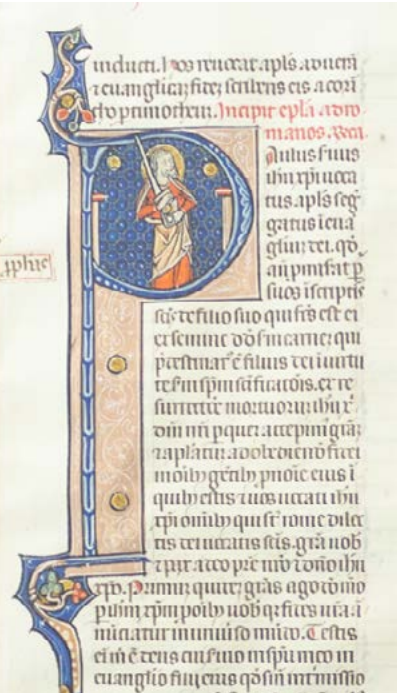 inducti. hos reuocat apls aduerā
⁊ euangl̓icā fidē scribens eis a cori
tho p timotheū. Incipit epl̓a ad ro
manos.
Aulus suus
ihu xp̄i uoca
tus. apl̓s seg̾
gatus ī euā
gliū dei. qd̓
an̄ pmiserat p̲
suos ī scriptis
scīs de filio suo qui fcs̄ est ei
ex semine dd̓ sm carnē. qui
p̄destinat᷒ ē filius dei ī uirtu
te sm spm scīficatōis. ex re
surrectiōe mortuorū ihu x̄
dn̄i nr̄i p quē accepim᷒ gr̄am
⁊ apl̓atū. ad obediendū fidei
ī oīb᷒ gētib᷒ p noīe eius ī
quib᷒ estis ⁊ uos uocati ihu
xp̄i oīnib᷒ qui st̄ rome dilec
tis dei uocatis scīs. gr̄a uob̄
⁊ pax a deo pr̄e nr̄o ⁊ dn̄o ihu
xp̄o. Primū quidē gr̄as ago dō mō
p ihm xp̄m p oīb᷒ uob̄ q̄ fides ur̄a ā
nūciatur ī uniuso mūdo. Testis
ei m̄ ē deus cui suio ī spū meo in
euanglio filii eius qd̓ sn̄ intmissiō